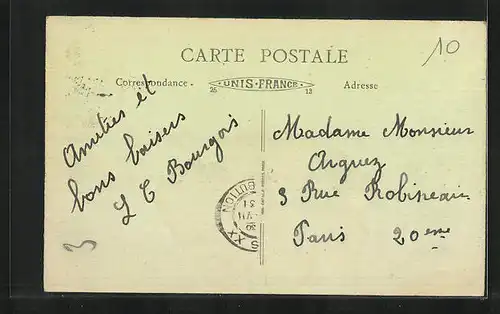 CARTE POSTALE
10
Correspondance.
UNIS-FRANCE
26 13
Adresse
Amitiés et
bons baisers
L C Bourgois
Madame Monsieur
Arguez
3 Rue Robineau
Paris 20eme
3